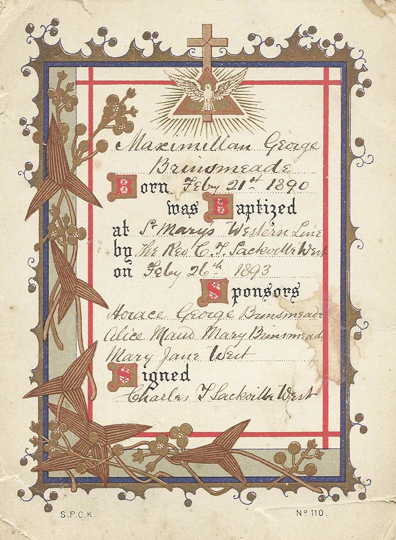 Maximillan George
Brinsmeade
Born Feby 21st 1890
was Baptized
at St Marys Western Line
by The Rev C. T. Sackville West
on Feby 26th 1893
Sponsors
Horace George Brinsmeade
Alice Maud Mary Brinsmeade
Mary Jane West
Signed
Charles T Sackville West
S.P.C.K. No 110.